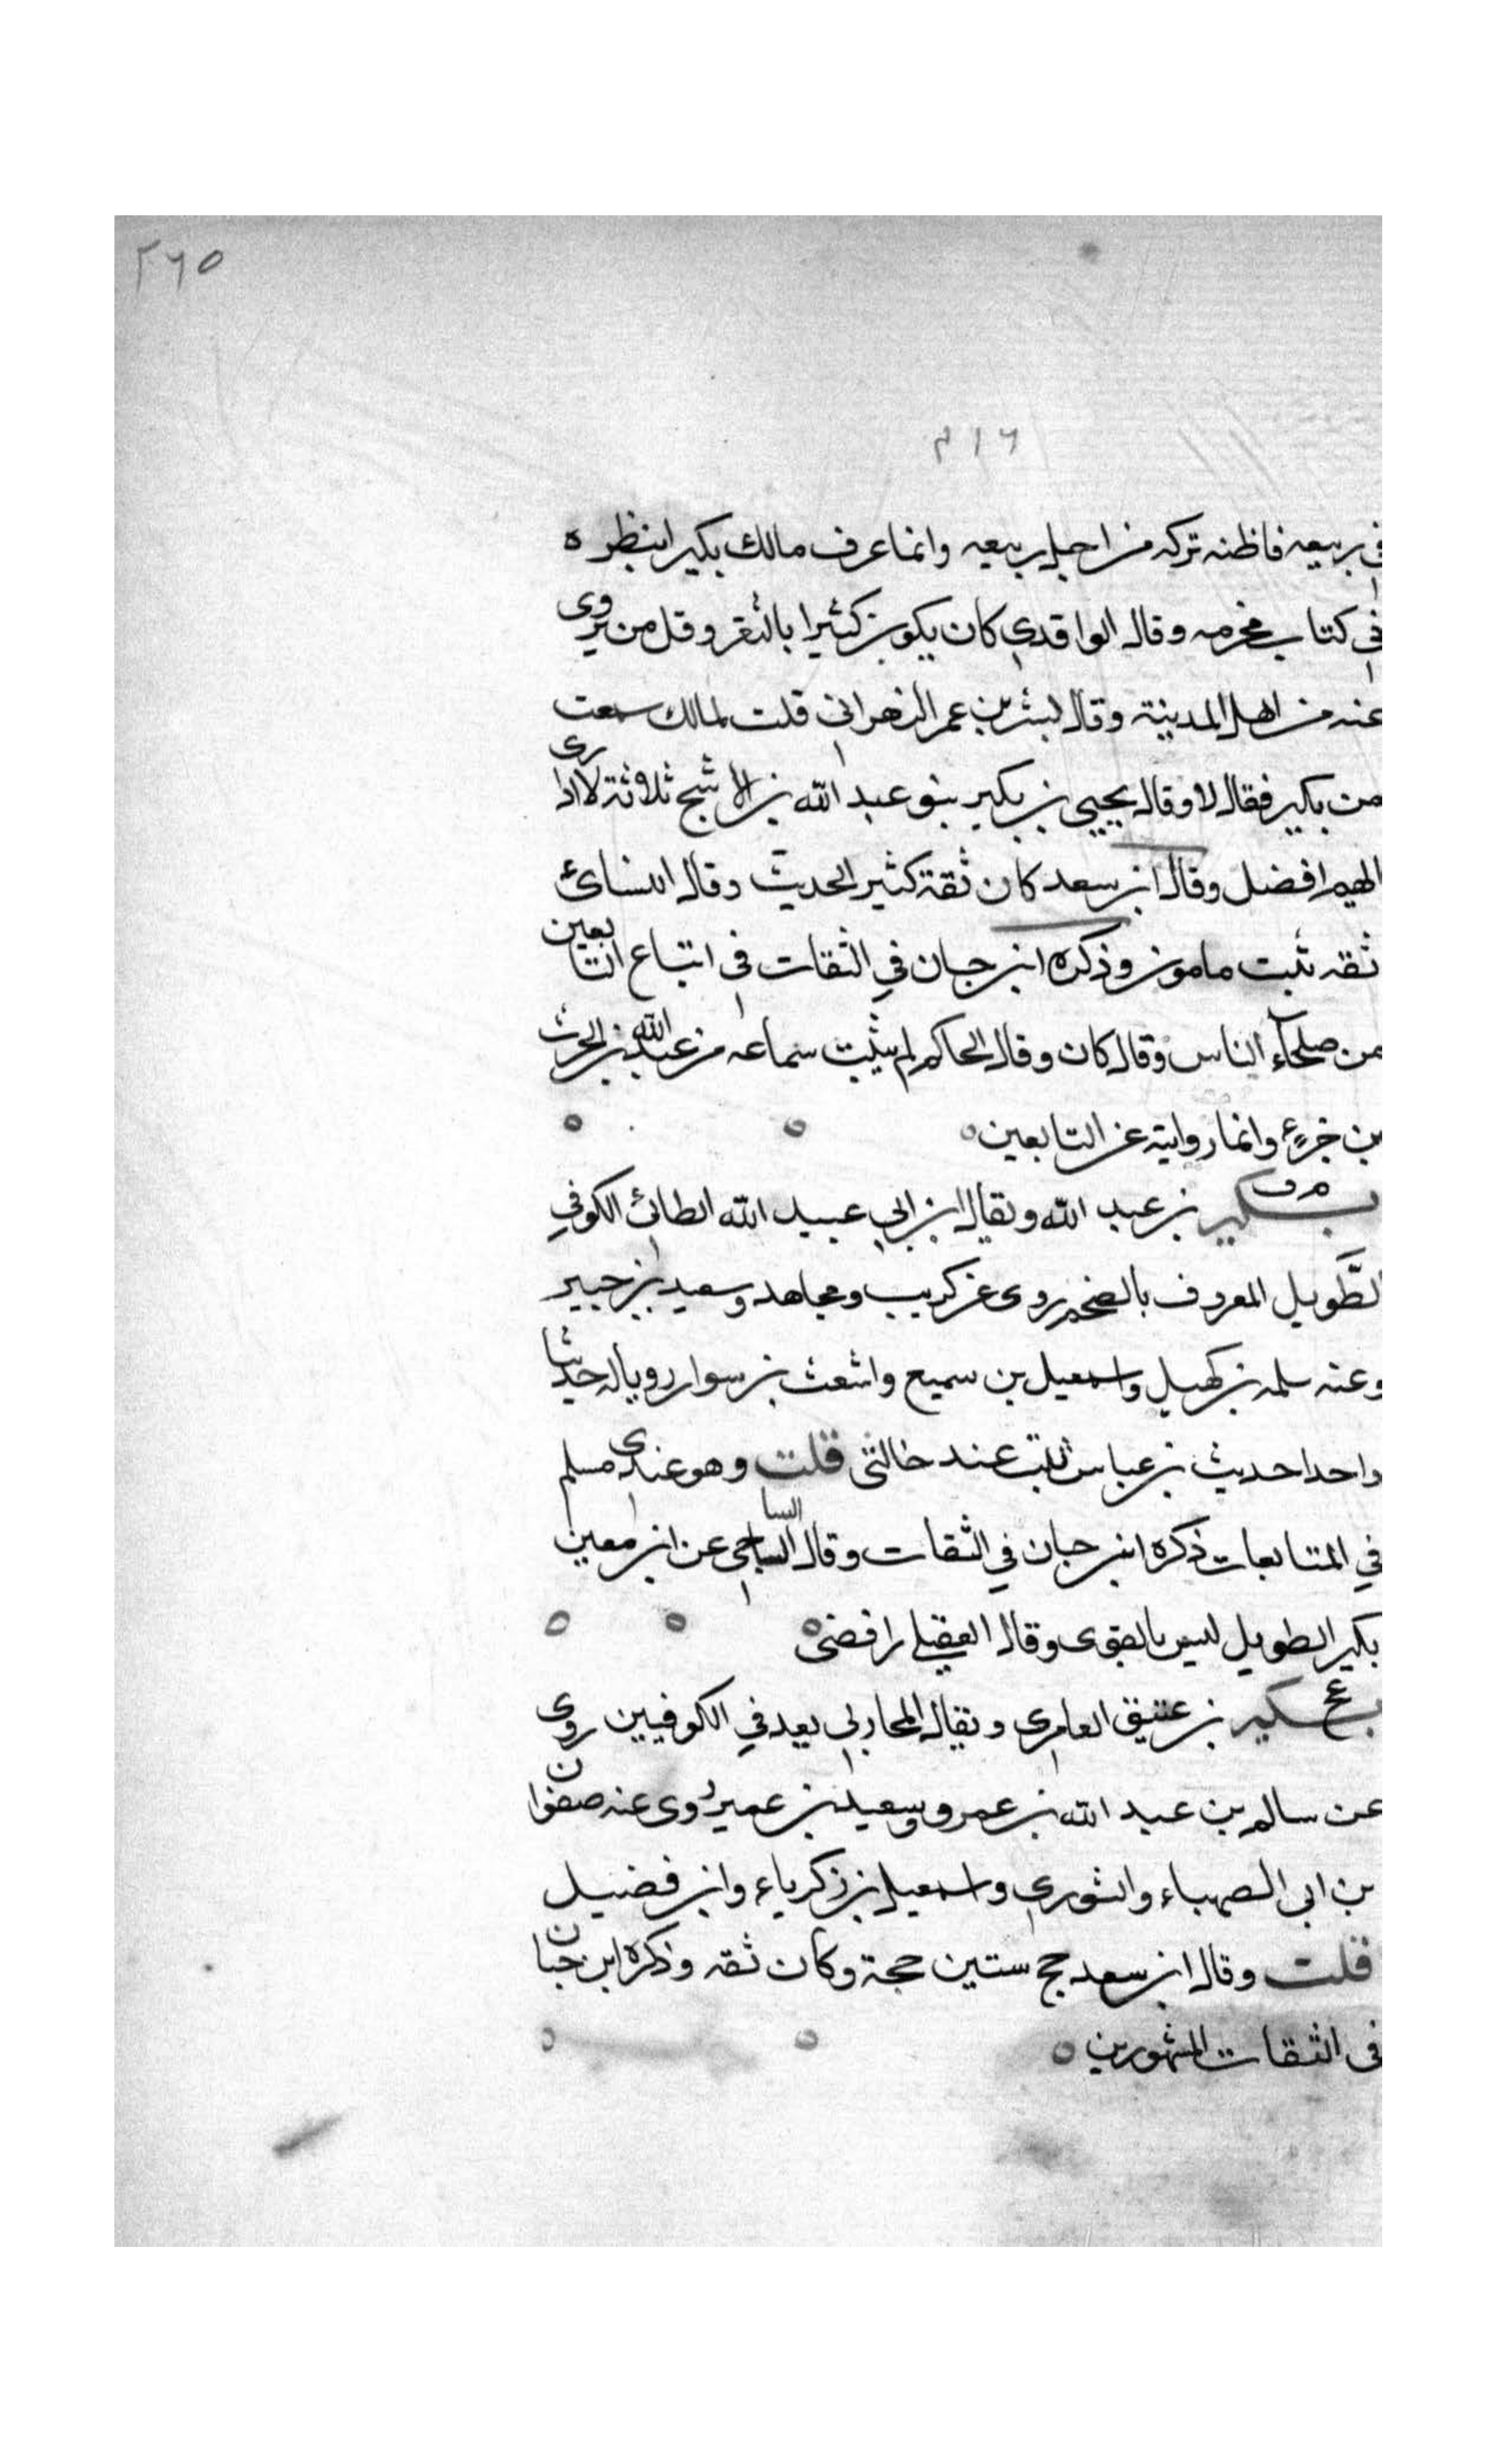 ٢٦٥
٢١٦
في ربيعه فاظنه تركه من اجل ربيعه وانما عرف مالك بكير ابنظره
في كتاب مخرمه وقال الواقدي كان يكون كثيرا بالثغر وقل من يروى
عنه من اهل المدينة وقال بشر بن عمر الزهراني قلت لمالك سمعت
من بكير فقال لا وقال يحيى بن بكير بنو عبد الله بن الاشج ثلاثة لا ادرى
ايهم افضل وقال ابن سعد كان ثقة كثير الحديث وقال النسائي
ثقه ثبت مامون وذكره ابن حبان في الثقات في اتباع التابعين
من صلحاء الناس وقال كان وقال الحاكم لم يثبت سماعه من عبد الله بن الحرث
بن جزء وانما روايته عن التابعين
م ق
بكير بن عبد الله ويقال ابن ابي عبيد الله الطائي الكوفي
الطَّويل المعروف بالضخم روى عن كريب ومجاهد وسعيد بن جبير
وعنه سلمه بن كهيل واسمعيل بن سميع واشعث بن سوار رويا له حديثا
واحدا حديث بن عباس ثلبت عند خالتي قلت وهو عندى مسلم
في المتابعات ذكره ابن حبان في الثقات وقال الساجي عن ابن معين
السا
بكير الطويل ليس بالقوى وقال العقيلي رافضى
بخ
بكير بن عتيق العامرى ويقال المحاربي يعد في الكوفيين روى
عن سالم بن عبد الله بن عمر وسعيد بن عمير روى عنه صفوان
بن ابى الصهباء والثورى واسمعيل بن زكرياء وابن فضيل
قلت وقال ابن سعد حج ستين حجة وكان ثقه وذكره ابن حبان
في الثقات المشهورين